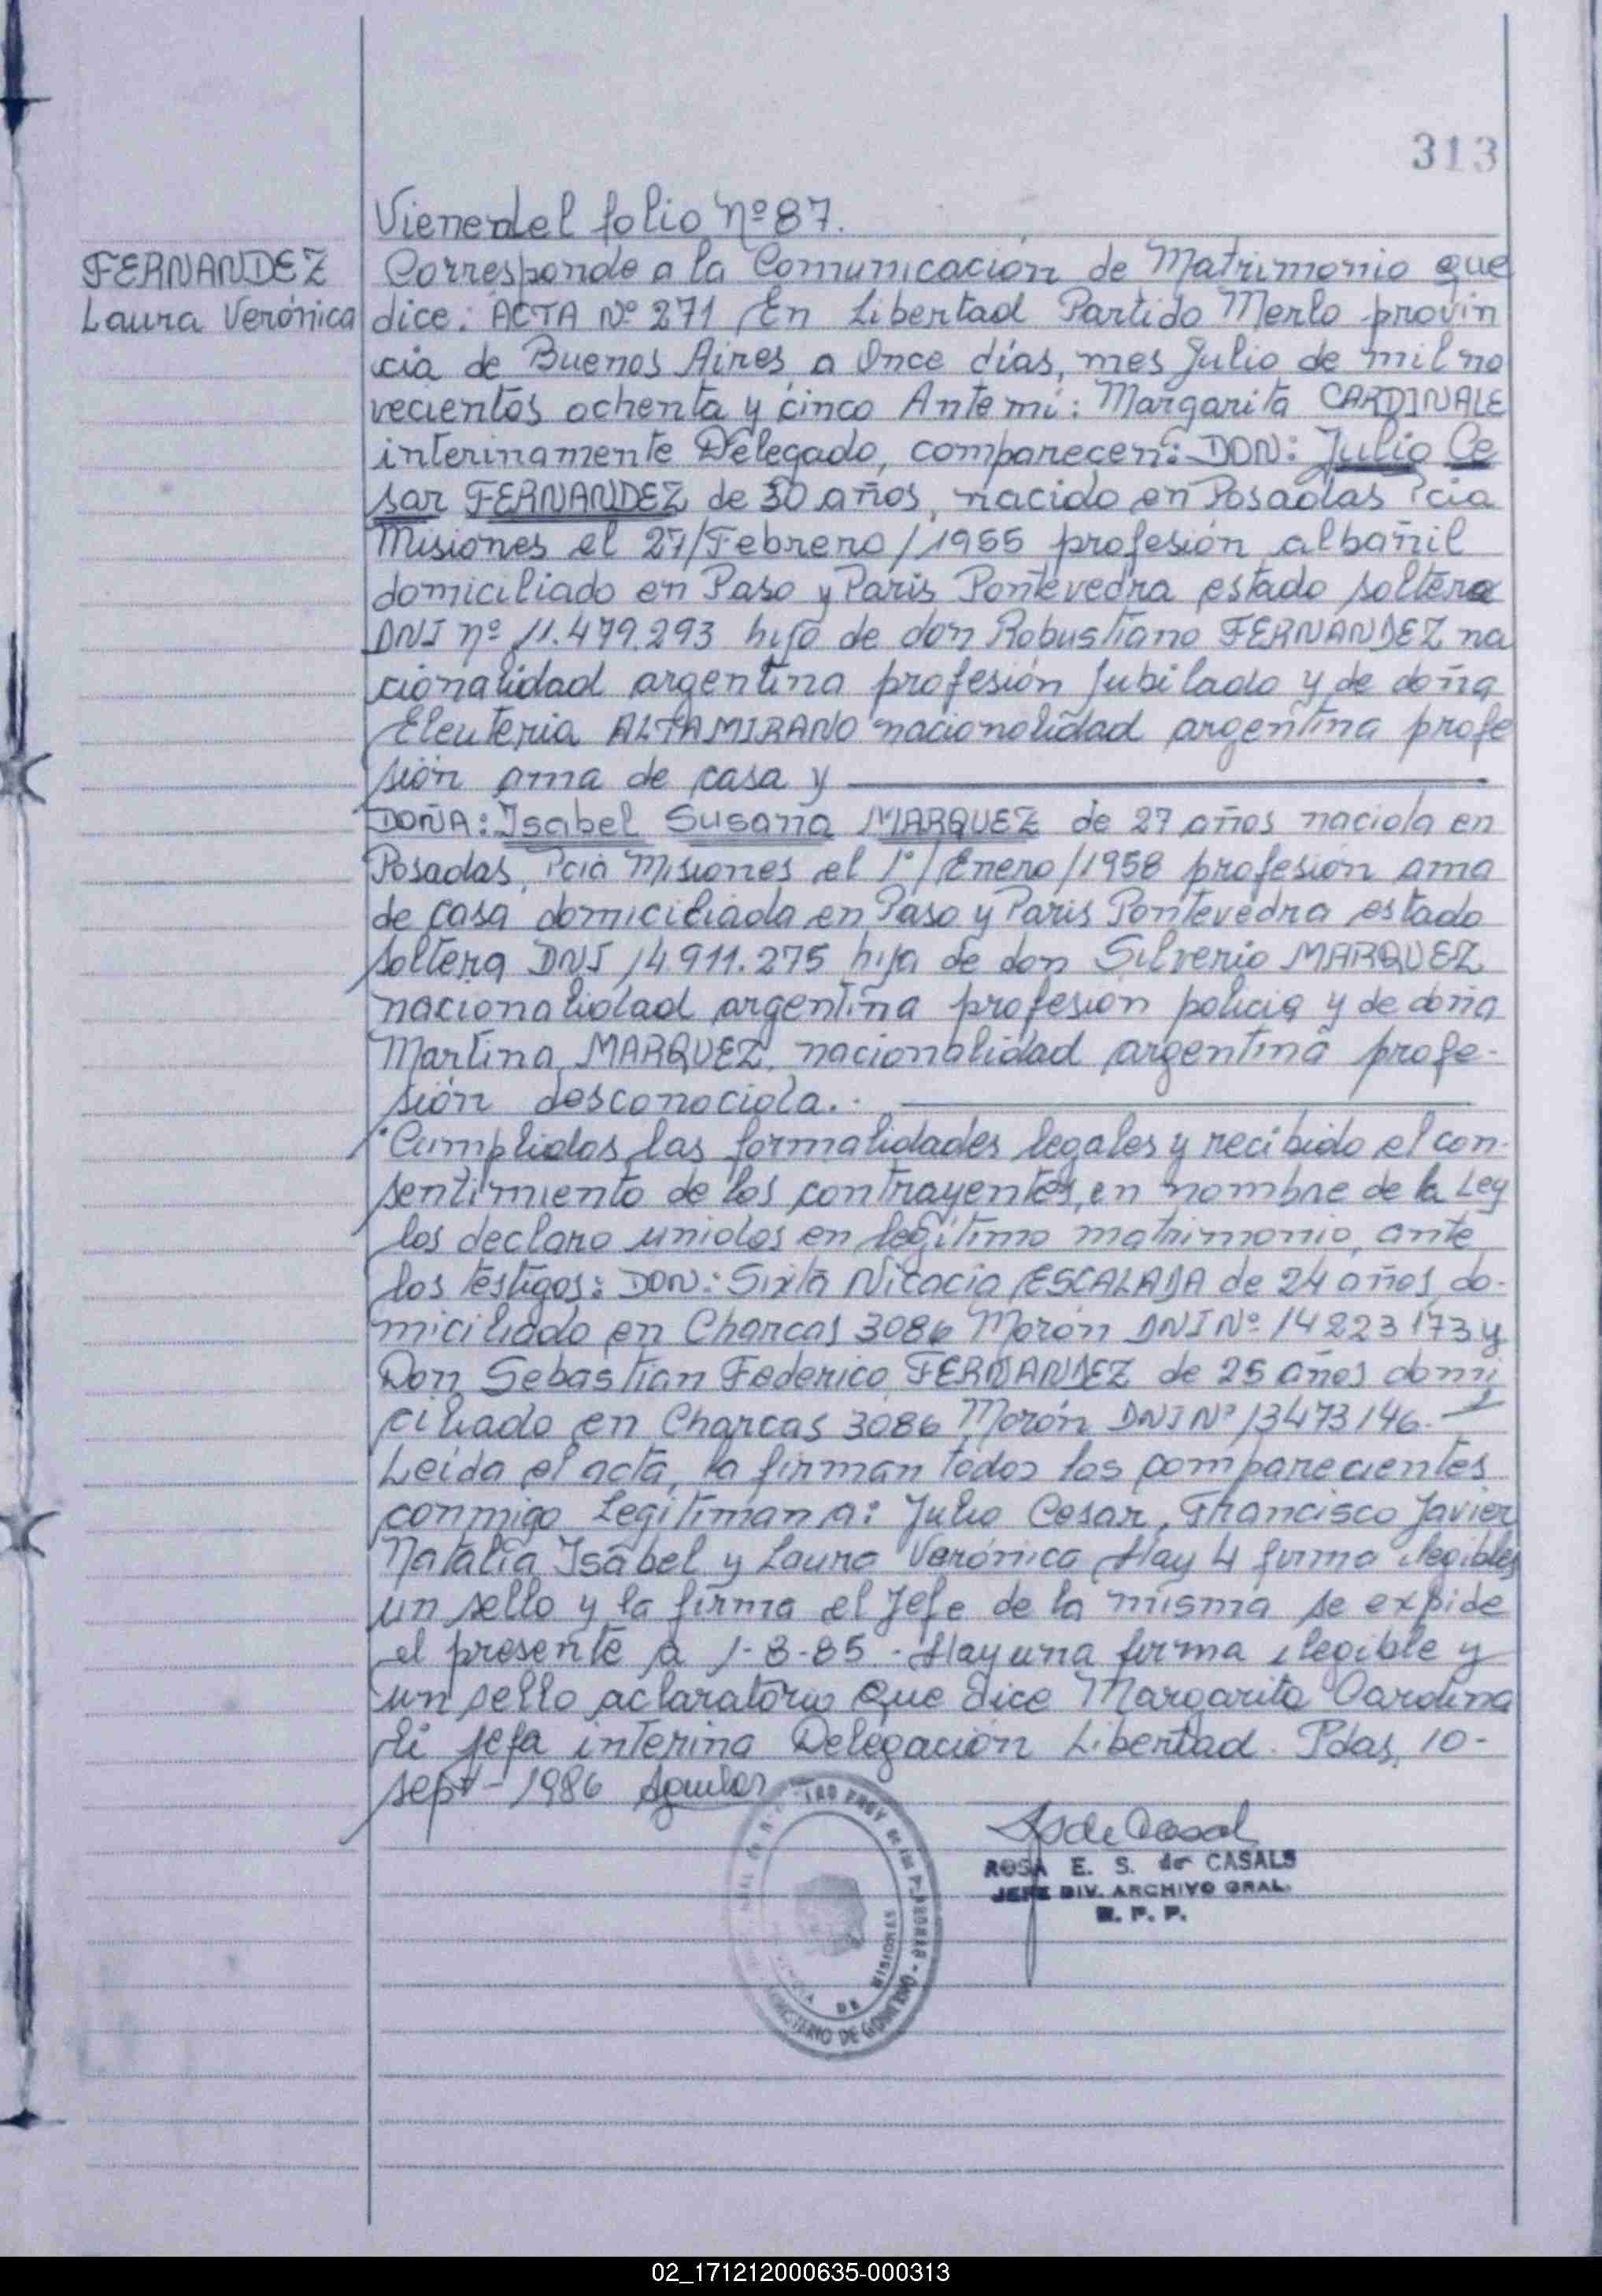 313
Viene del folio Nº 87.
FERNANDEZ
Laura Verónica
Corresponde a la Comunicación de Matrimonio que
dice: ACTA Nº 271 En Libertad Partido Merlo provin
cia de Buenos Aires, a Once días, mes Julio de mil no
vecientos ochenta y cinco Ante mí: Margarita CARDINALE
interinamente Delegado, comparecen: DON: Julio Ce
sar FERNANDEZ de 30 años, nacido en Posadas Pcia
Misiones el 27/Febrero/1955 profesión albañil
domiciliado en Paso y Paris Pontevedra estado soltero
DNI nº 11.479.293 hijo de don Robustiano FERNANDEZ na
cionalidad argentina profesión Jubilado y de doña
Eleuteria ALTAMIRANO nacionalidad argentina profe
sión ama de casa y
DOÑA: Isabel Susana MARQUEZ de 27 años nacida en
Posadas, Pcia Misiones el 1º/Enero/1958 profesión ama
de casa domiciliada en Paso y Paris Pontevedra estado
soltera DNI 14911.275 hija de don Silverio MARQUEZ
nacionalidad argentina profesión policia y de doña
Martina MARQUEZ, nacionalidad argentina profe-
sión desconocida..
Cumplidas las formalidades legales y recibido el con-
sentimiento de los contrayentes, en nombre de la Ley
los declaro unidos en legítimo matrimonio, ante
los testigos: DON: Sixta Nicacia ESCALADA de 24 años, do-
miciliado en Charcas 3086 Morón DNI Nº 14223173 y
Don Sebastian Federico FERNANDEZ de 25 años domi
ciliado en Charcas 3086 Morón DNI Nº 13473146.
Leída el acta, la firman todos los comparecientes
conmigo Legitiman a: Julio Cesar, Francisco Javier
Natalia Isabel y Laura Verónica Hay 4 firma ilegibles
un sello y la firma el Jefe de la misma se expide
el presente a 1-8-85 - Hay una firma ilegible y
un sello aclaratorio que dice Margarita Cardina
li jefa interina Delegación Libertad. Pdas, 10-
sept-1986 Aguilar
ROSA E. S. de CASALS
JEFE DIV. ARCHIVO GRAL.
R. P. P.
DE MISIONES
MINISTERIO DE GOBIERNO
02_171212000635-000313